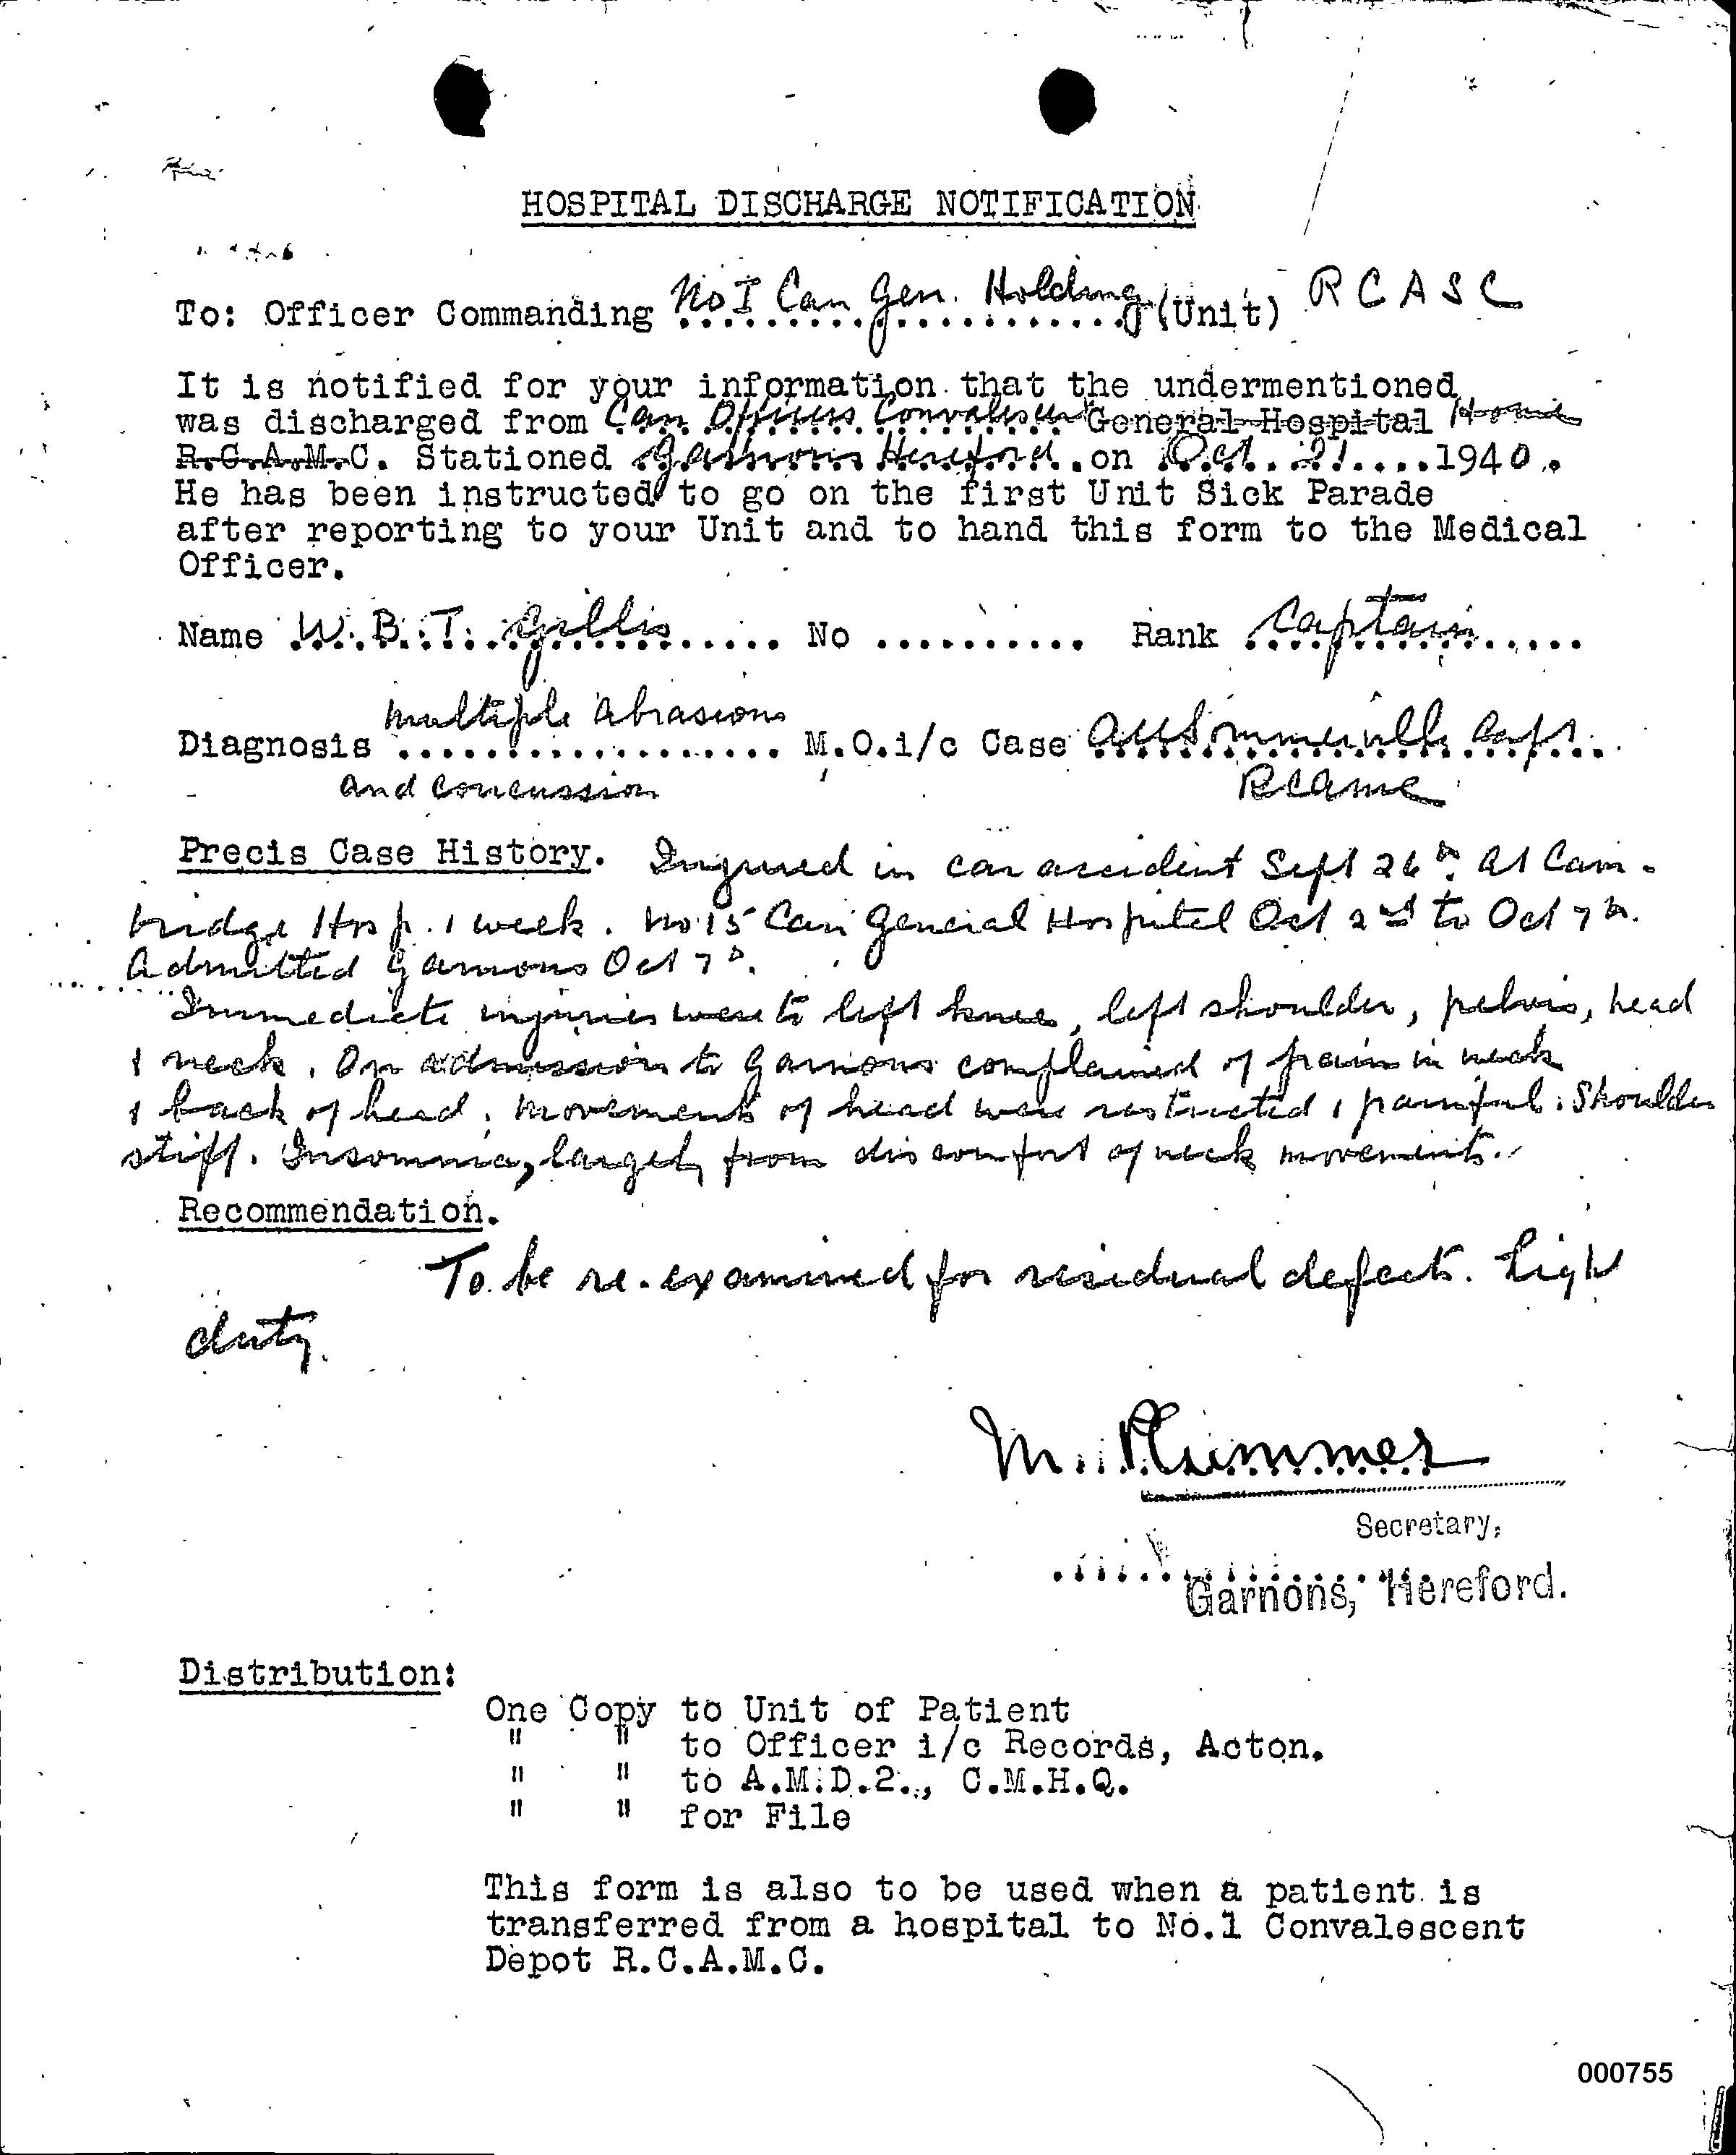 HOSPITAL DISCHARGE NOTIFICATION
To: Officer Commanding No I Can Gen. Holding (Unit) RCASC
It is notified for your information that the undermentioned
was discharged from Can Officers Convalescent General Hospital Home
R.C.A.M.C. Stationed Garnons Hereford on Oct. 21....1940.
He has been instructed to go on the first Unit Sick Parade
after reporting to your Unit and to hand this form to the Medical
Officer.
Name W.B.T. Gillis ..... No .......... Rank Captain .....
multiple abrasions
Diagnosis .................. M.O.i/c Case Sommerville Capt.
and concussion RCAMC
Precis Case History. Injured in car accident Sept 26th. At Cam-
bridge Hosp. 1 week. No 15 Can General Hospital Oct 2nd to Oct 7th.
Admitted Garnons Oct 7th.
Immediate injuries were to left knee, left shoulder, pelvis, head
& neck. On admission to Garnons complained of pain in neck
& back of head. Movements of head were restricted & painful. Shoulder
stiff. Insomnia, largely from discomfort of neck movements.
Recommendation.
To be re-examined for residual defects. Light
duty.
M. Plummer
Secretary,
Garnons, Hereford.
Distribution:
One Copy to Unit of Patient
" " to Officer i/c Records, Acton.
" " to A.M.D.2., C.M.H.Q.
" " for File
This form is also to be used when a patient is
transferred from a hospital to No.1 Convalescent
Depot R.C.A.M.C.
000755